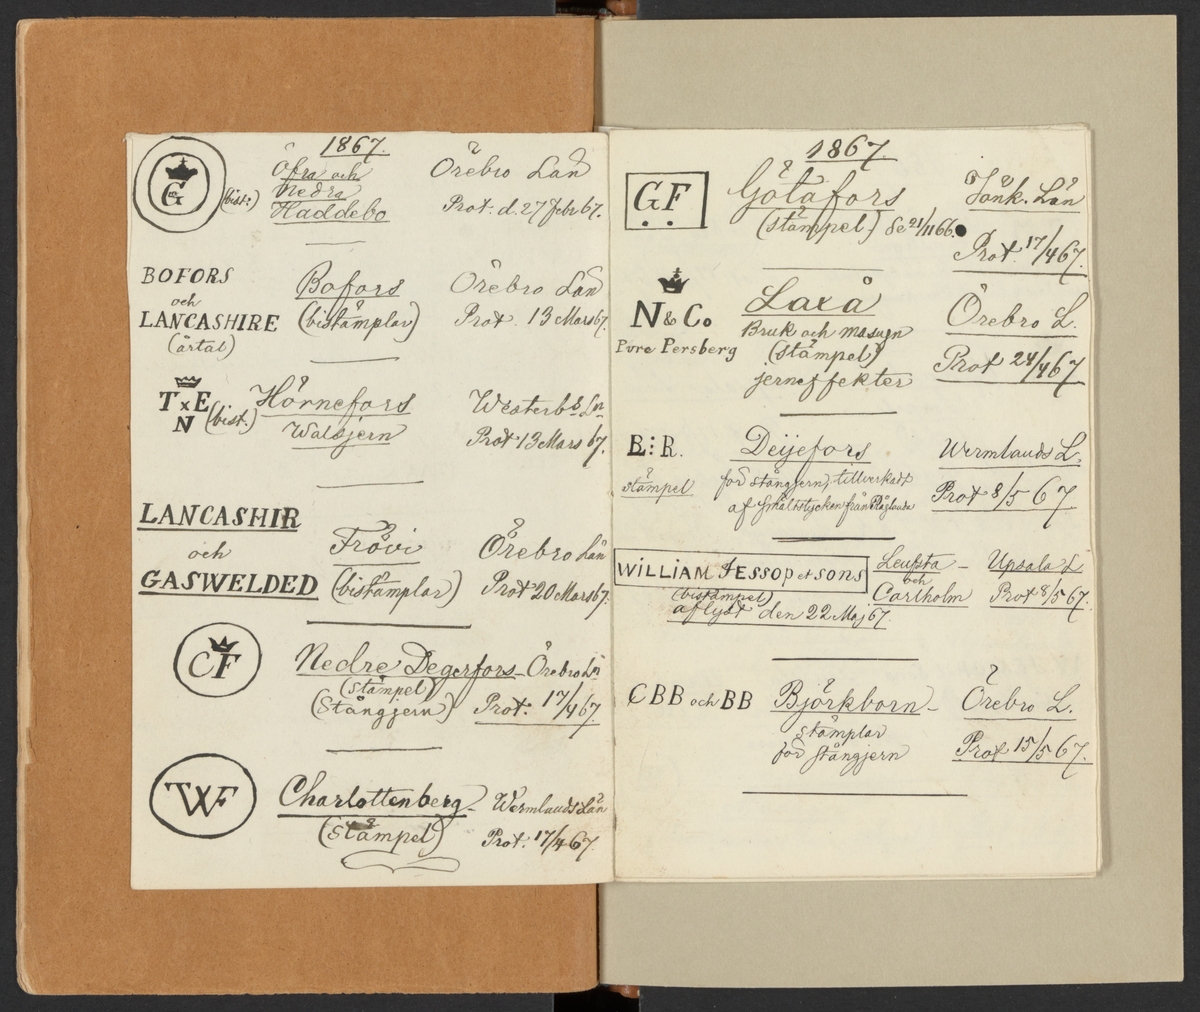 1867.
G
(bist.)
Öfra och
Nedra
Haddebo
Örebro Län
Prot. d. 27 Febr 67.
BOFORS
och
LANCASHIRE
(årtal)
Bofors
(bistämplar)
Örebro Län
Prot. 13 Mars 67.
T x E
N
(bist.)
Hörnefors
Walsjern
Westerb.s Ln
Prot 13 Mars 67.
LANCASHIR
och
GASWELDED
Fröv
(bistämplar)
Örebro Län
Prot 20 Mars 67.
CF
Nedre Degerfors - Örebro Ln
(stämpel)
(Stångjern)
Prot. 17/4 67.
TWF
Charlottenberg -
(stämpel)
Wermlands Län
Prot. 17/4 67.
1867.
GF
Götafors
(stämpel) Se 21/11 66.
Jönk. Län
Prot. 17/4 67.
N & Co
Pure Persberg
Laxå
Bruk och masugn
(stämpel)
jerneffekter
Örebro L.
Prot 24/4 67.
E:R.
stämpel
Deijefors
för stångjern, tillverkadt
af smältstycken från
Wermlands L.
Prot 8/5 67
WILLIAM JESSOP et SONS
(bistämpel)
aflyst den 22 Maj 67.
Leufsta -
och
Carlholm
Upsala L
Prot 8/5 67.
CBB och BB
Björkborn -
stämplar
för stångjern
Örebro L.
Prot 15/5 67.